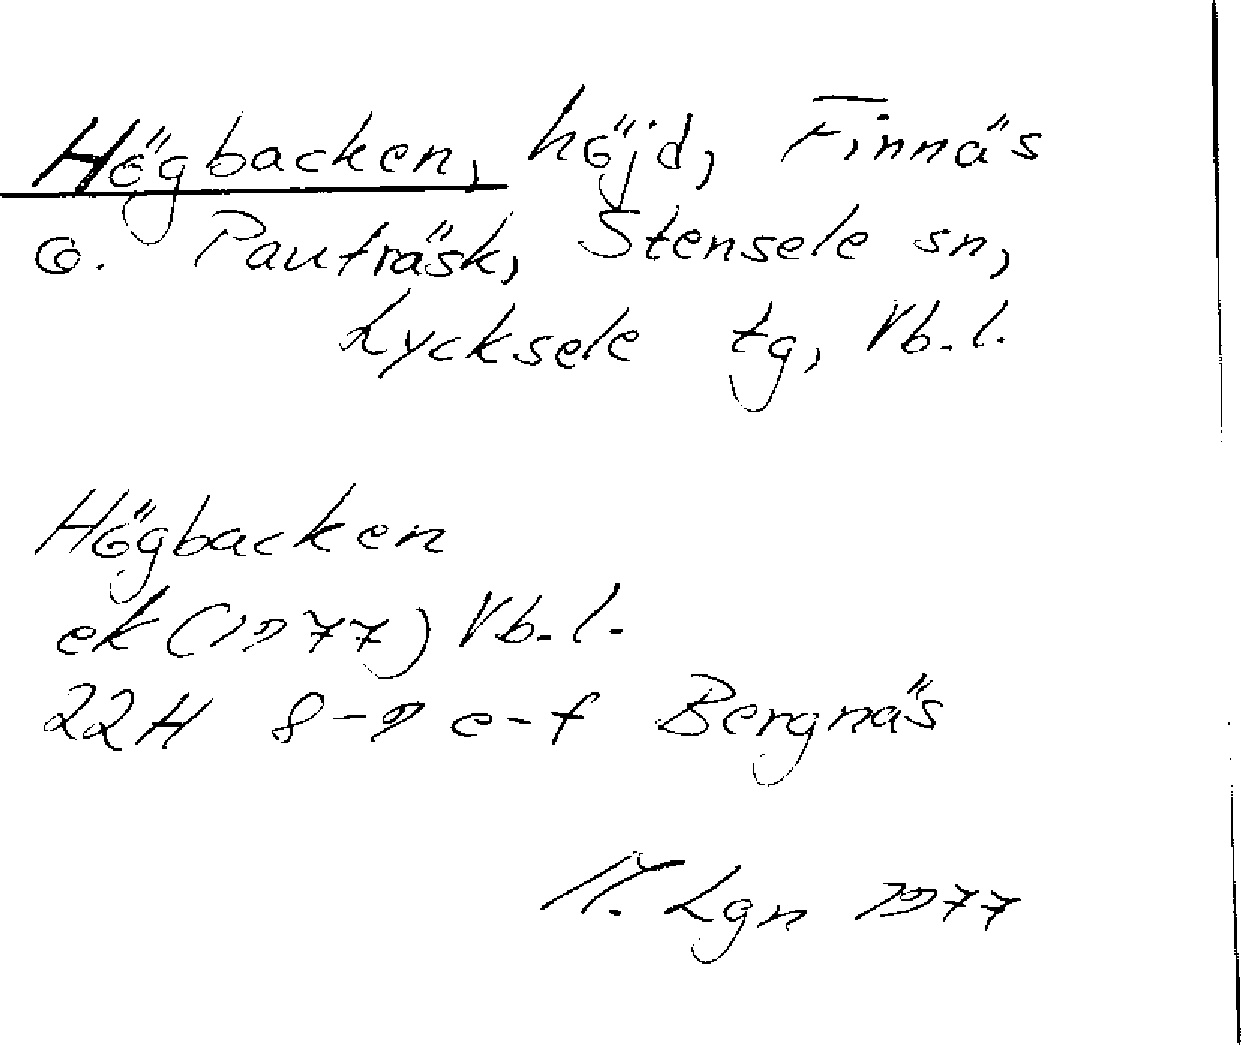 Högbacken, höjd, Finnäs
o. Pauträsk, Stensele sn,
Lycksele tg, Vb.l.
Högbacken
ek (1977) Vb.l.
22H 8-9 e-f Bergnäs
M. Lgn 1977